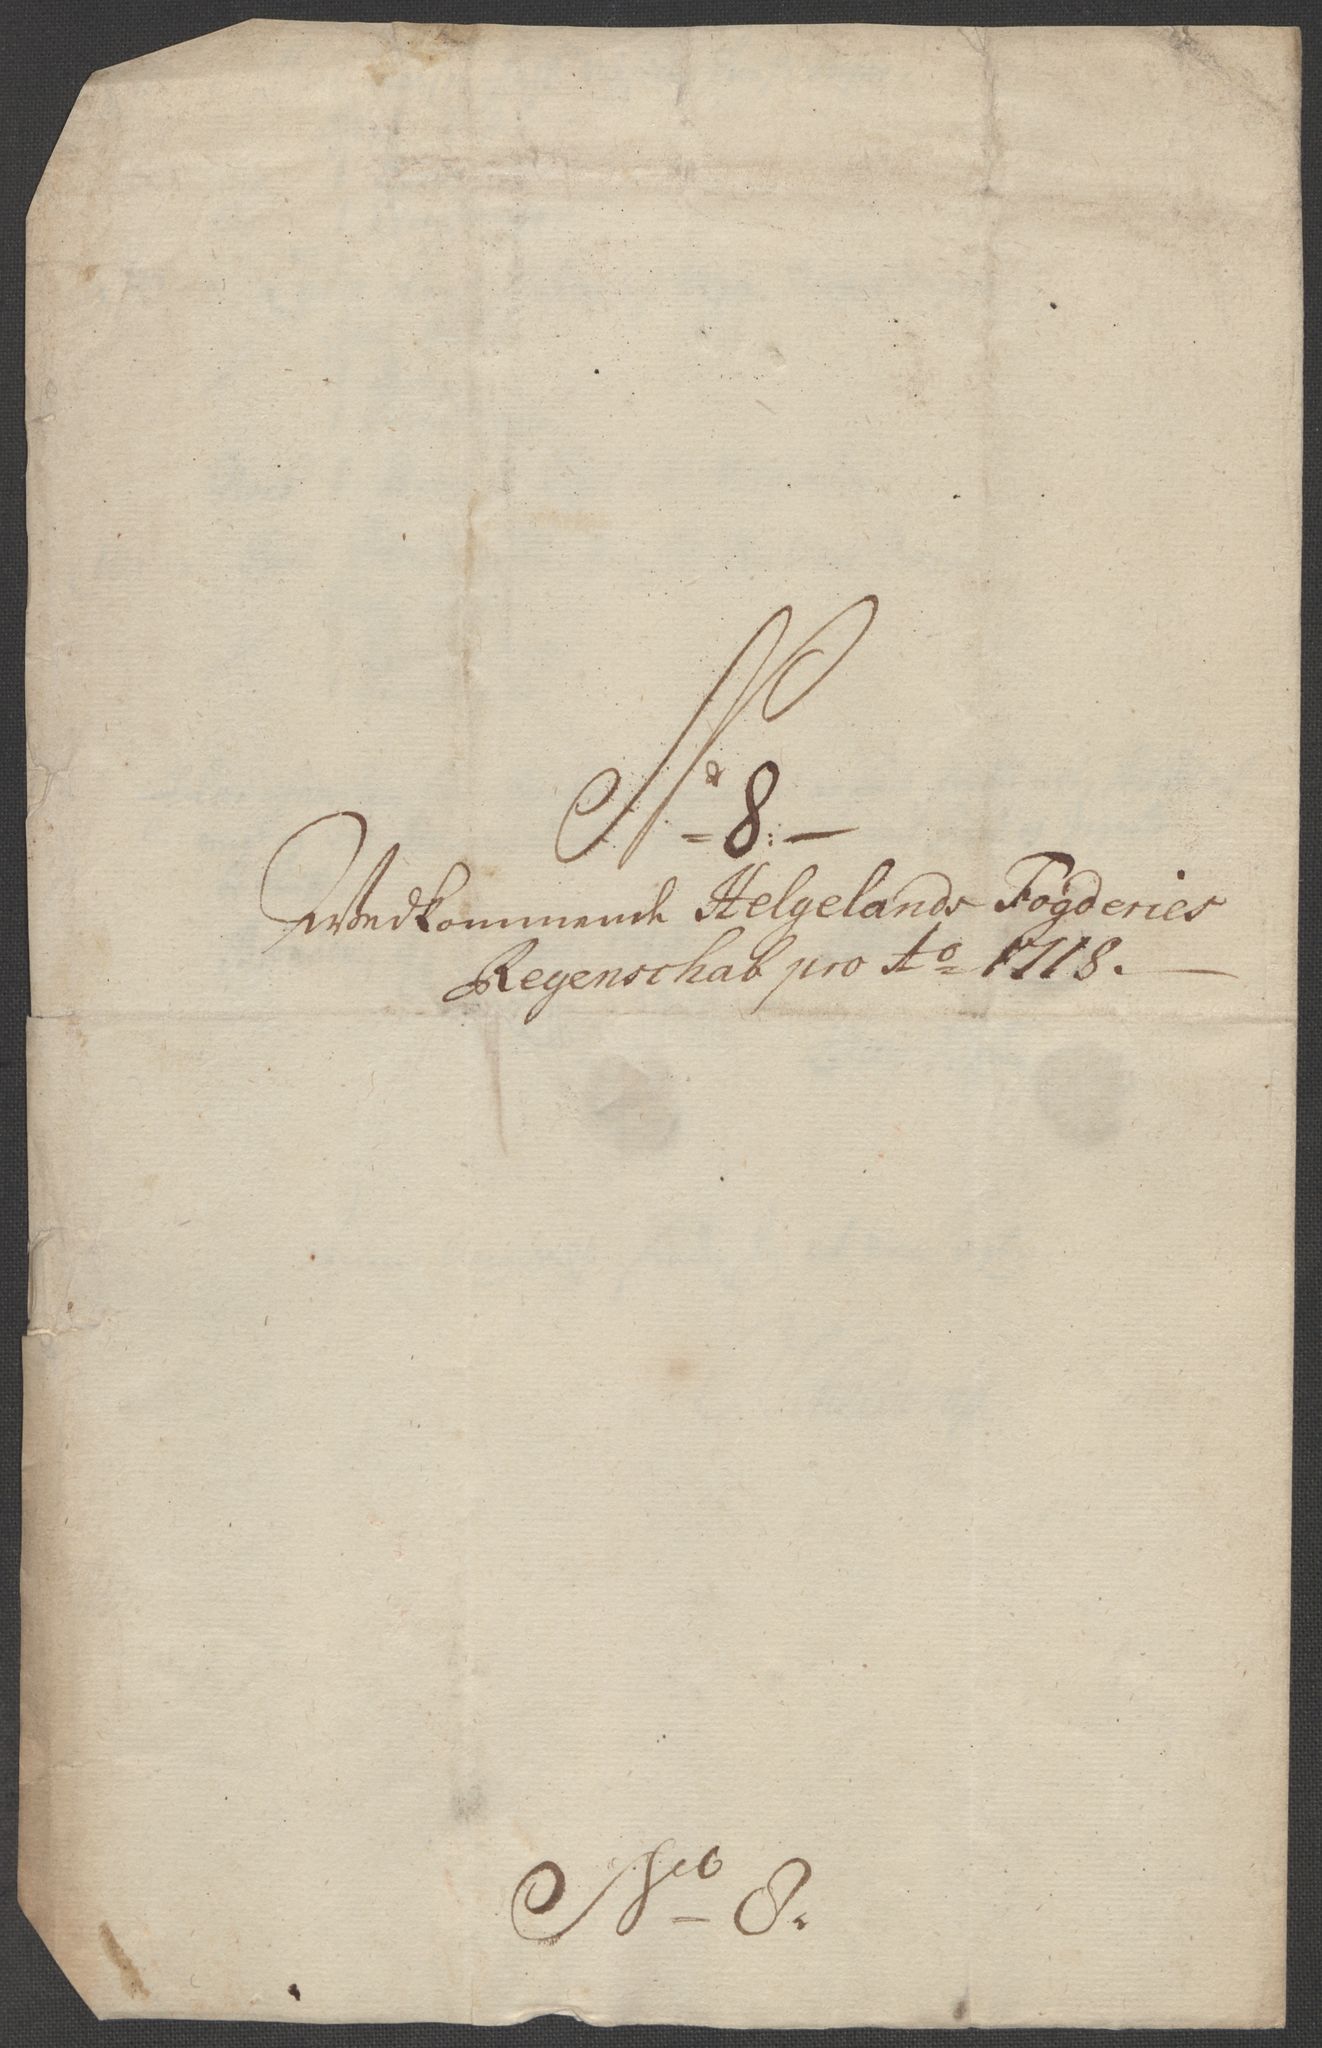 No
= 8. —
Vedkommende Helgelands Fogderies
Regenschab pro Ao 1718. —
No 8.